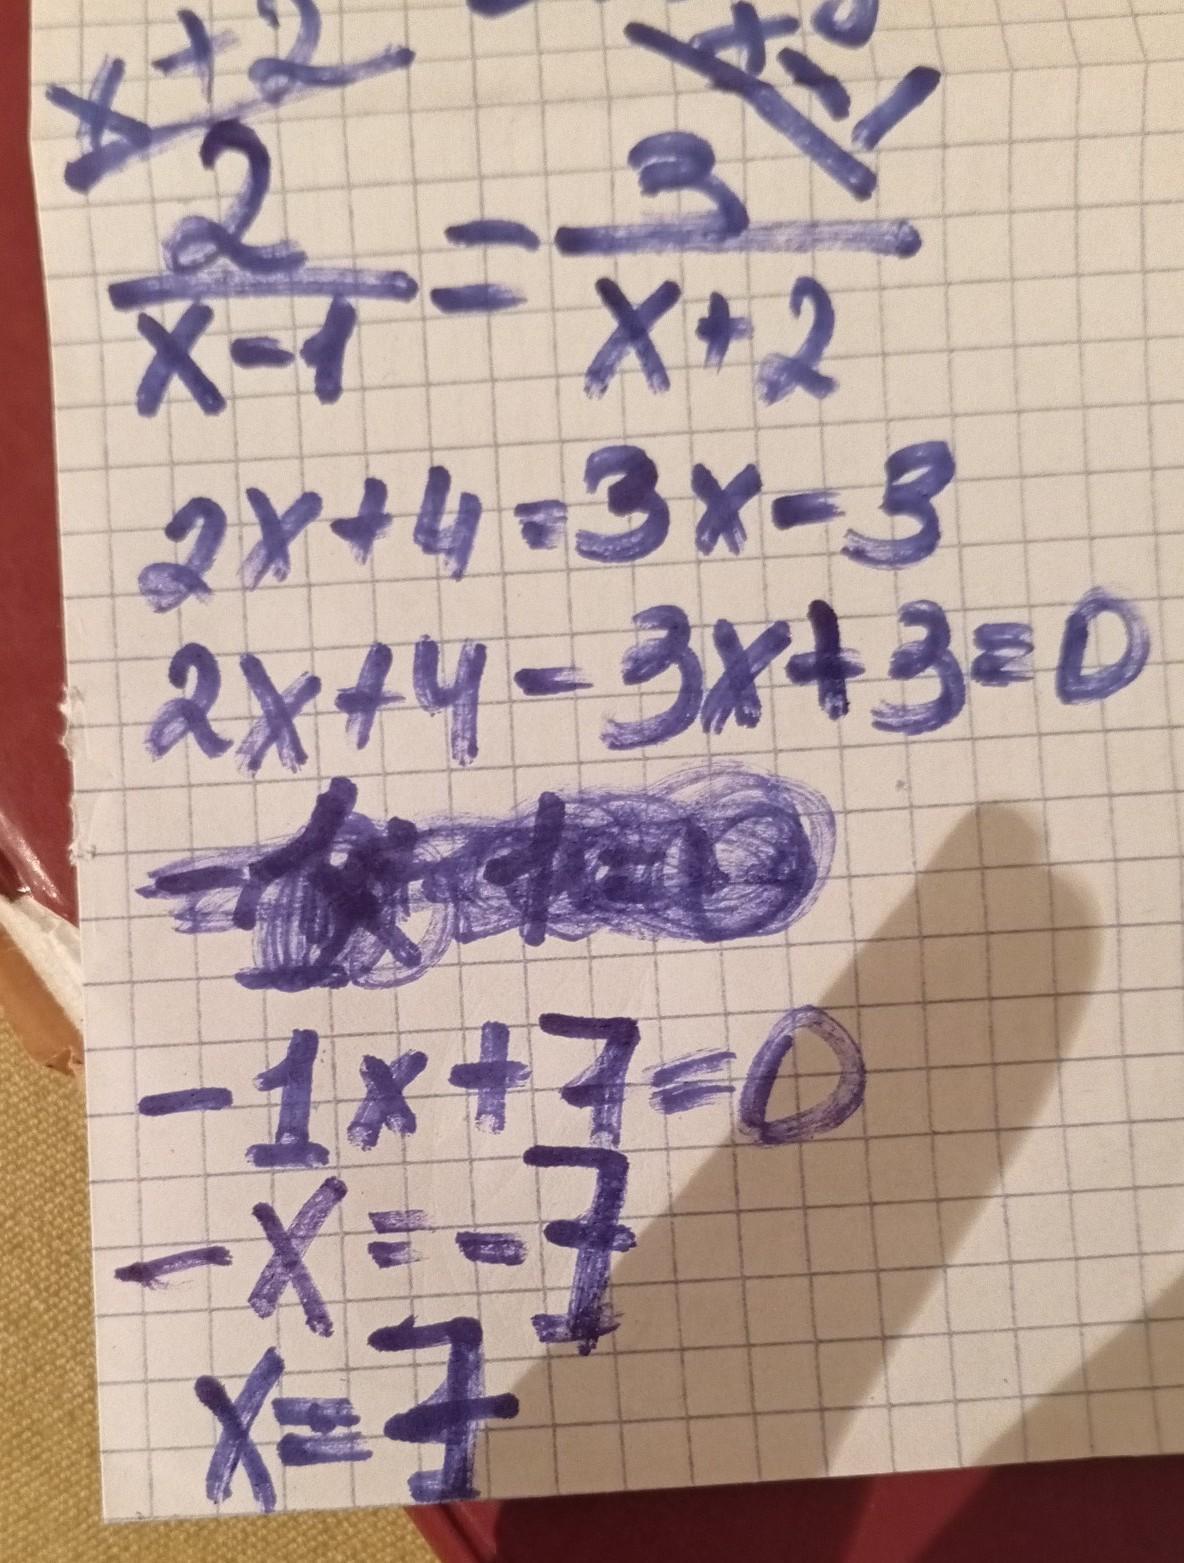 x+2
2/(x-1) = 3/(x+2)
2x+4=3x-3
2x+4-3x+3=0
-1x+7=0
-x=-7
x=7